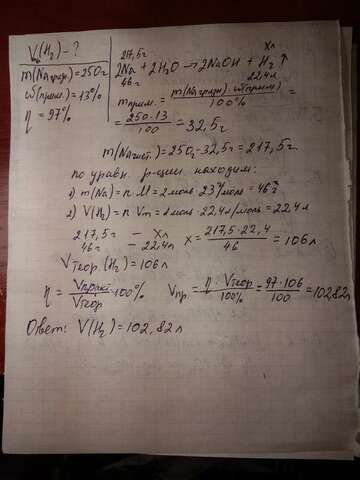 Vп(H₂) - ?
m(Na грязн.) = 250г
ω(прим.) = 13%
η = 97%
217,5г Xл
2Na + 2H₂O → 2NaOH + H₂↑
46г 22,4л
m прим. = m(Na грязн)·ω(прим) / 100% =
= 250·13 / 100 = 32,5г
m(Na чист.) = 250г - 32,5г = 217,5г
по уравн. р-ции находим:
1) m(Na) = n·M = 2моль·23г/моль = 46г
2) V(H₂) = n·Vm = 1моль·22,4л/моль = 22,4л
217,5г — Xл
46г — 22,4л
x = 217,5·22,4 / 46 = 106л
Vтеор.(H₂) = 106л
η = Vпракт / Vтеор · 100%
Vпр. = η·Vтеор / 100% = 97·106 / 100 = 102,82л
Ответ: V(H₂) = 102,82л